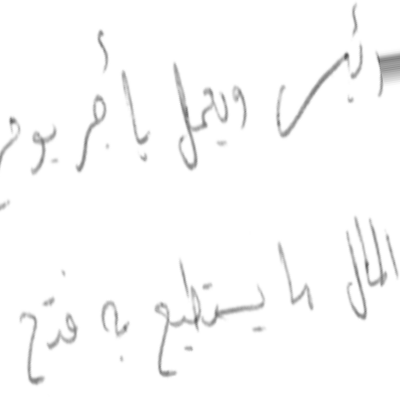 ويعمل بأجر يومي
المال ما يستطيع به فتح